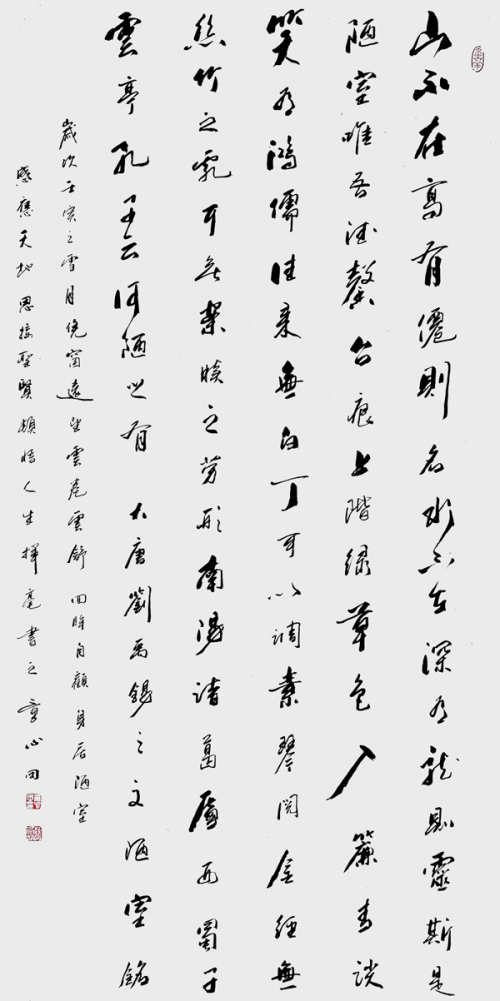 山不在高有僊則名水不在深有龍則靈斯是
陋室唯吾德馨台痕上階綠草色入簾青談
笑有鴻儒往來無白丁可以調素琴閱金經無
絲竹之亂耳無案牘之勞形南陽諸葛廬西蜀子
雲亭孔子云何陋之有 大唐劉禹錫之文陋室銘
歲次壬寅之雪月窗遠望雲卷雲舒回眸自顧身居陋室
感應天地思接聖賢頓悟人生揮毫書之